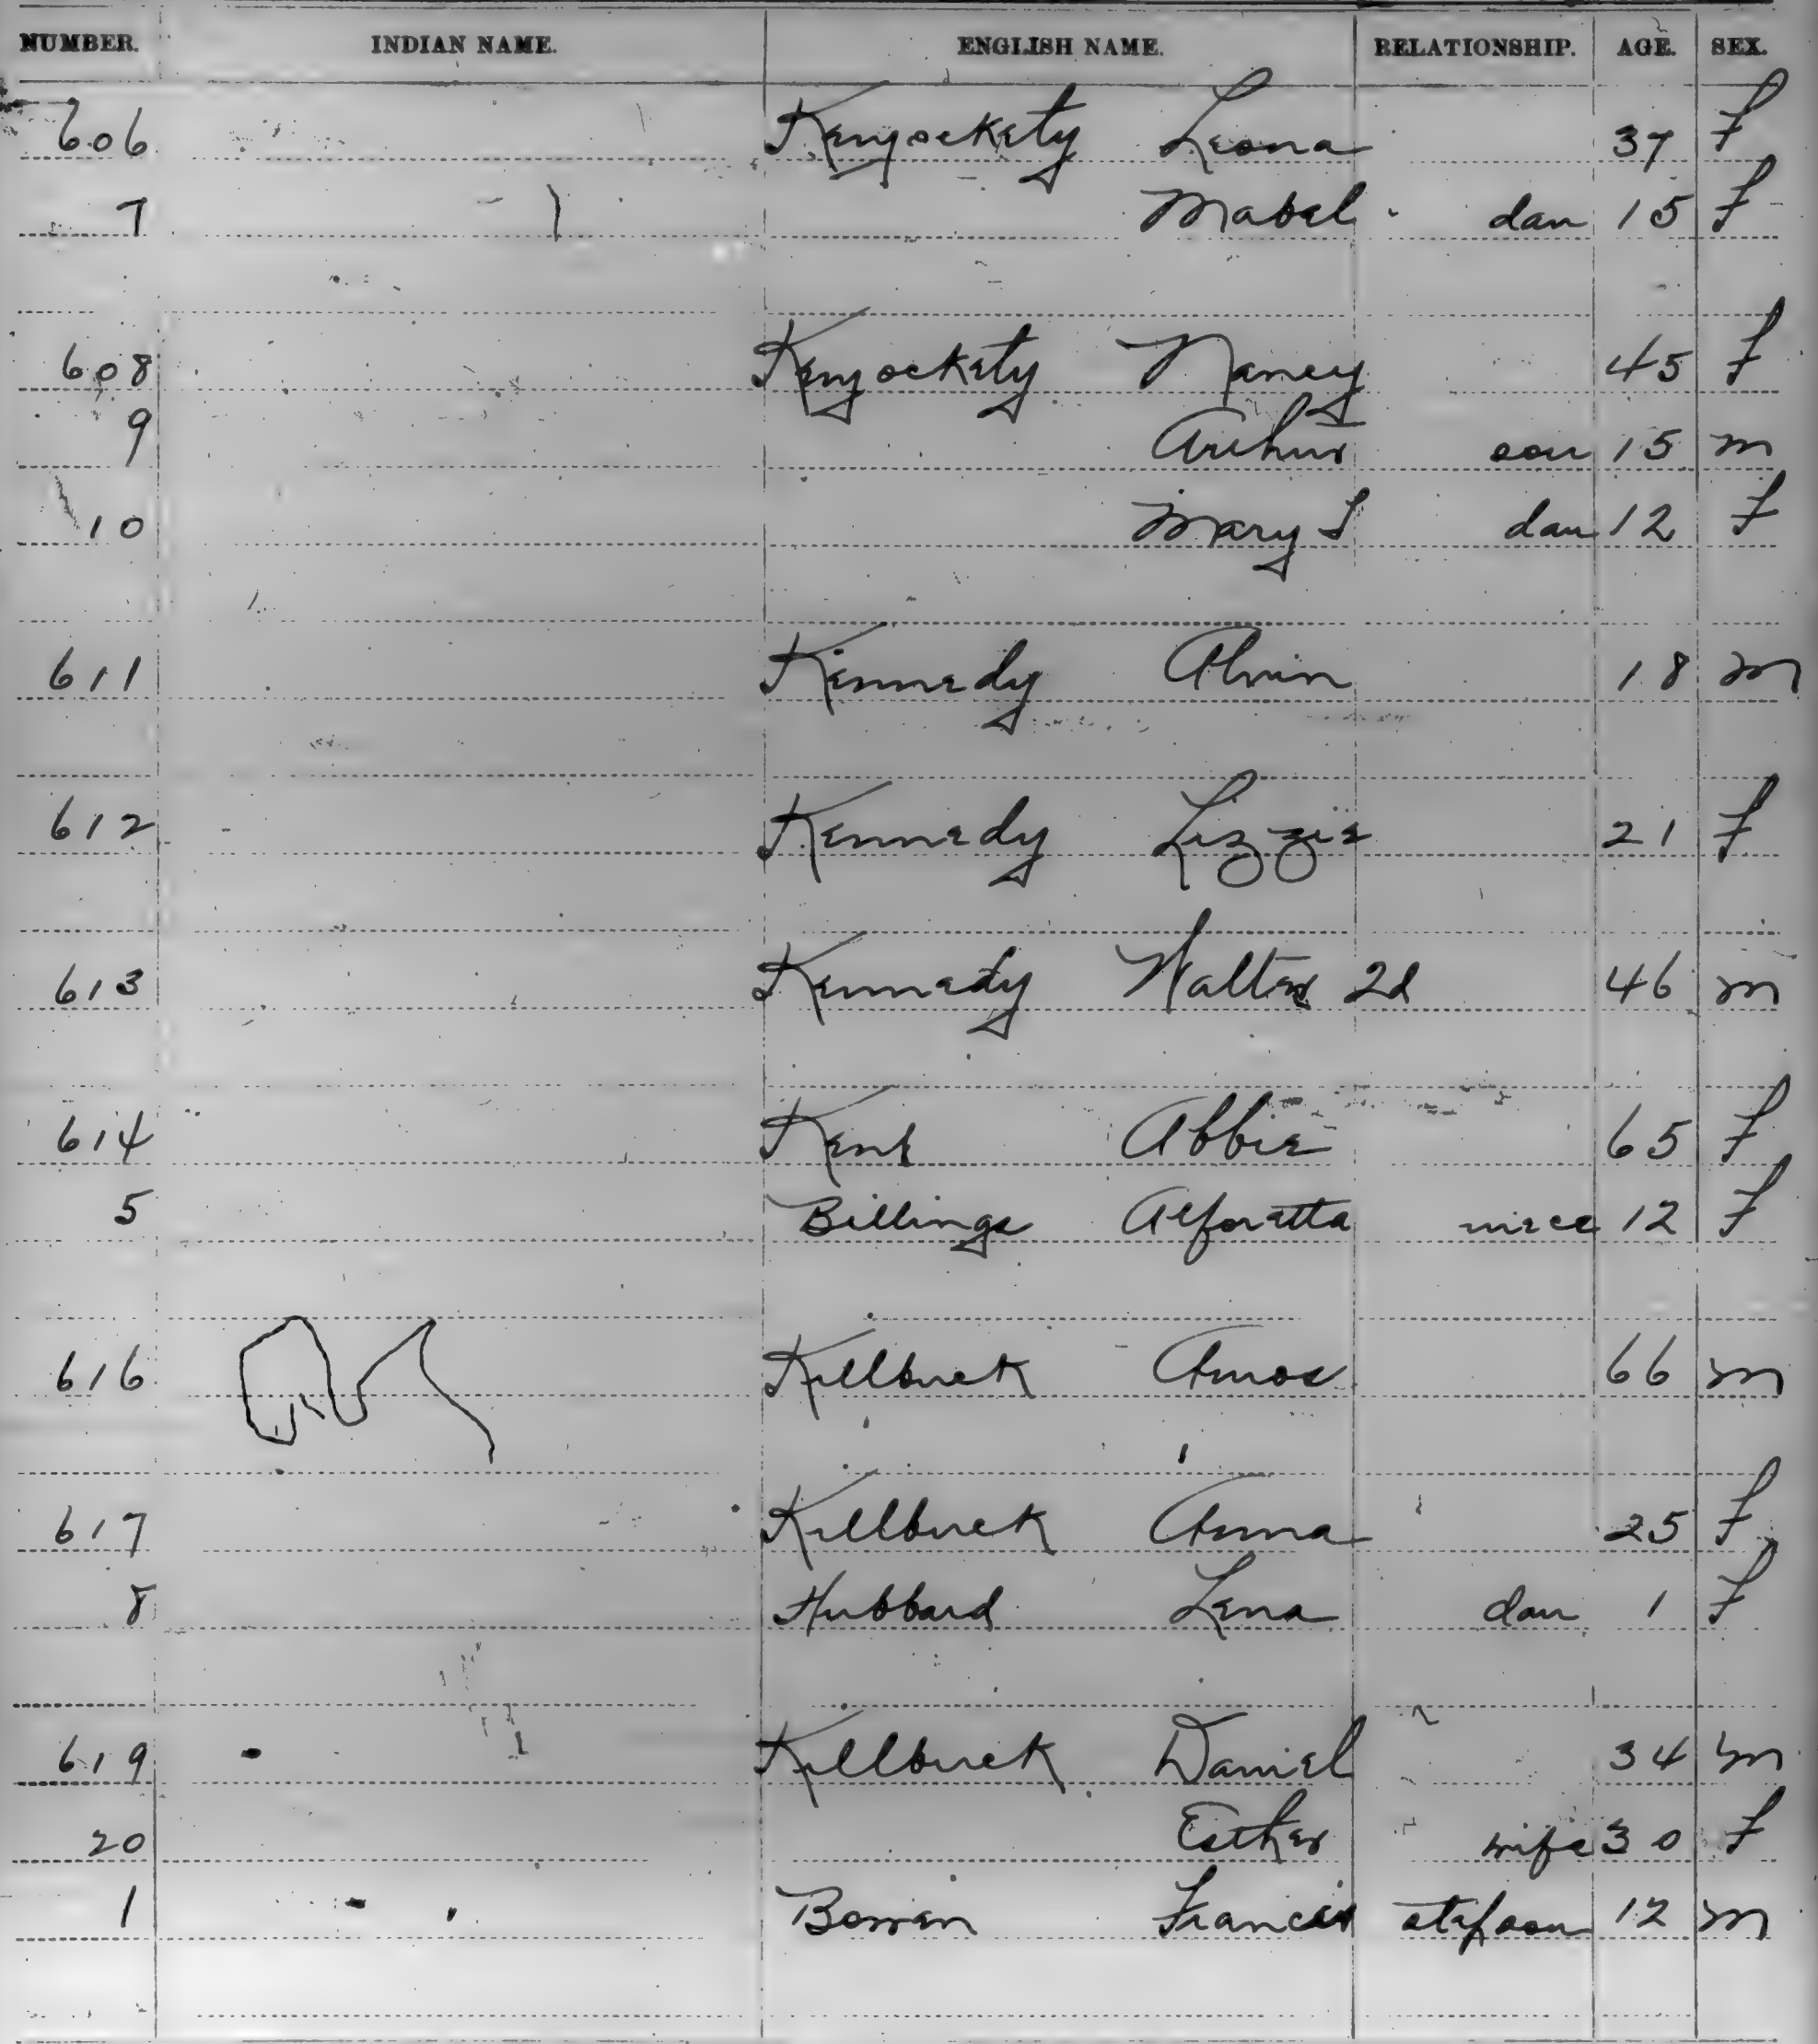 NUMBER. INDIAN NAME. ENGLISH NAME. RELATIONSHIP. AGE. SEX.
606 Kenjockety Leona 37 F
7 Mabel dau 15 F
608 Kenjockety Nancy 45 F
9 Arthur son 15 m
10 Mary L dau 12 F
611 Kennedy Alvin 18 m
612 Kennedy Lizzie 21 F
613 Kennedy Walter 2d 46 m
614 Kent Abbie 65 F
5 Billings Alforetta niece 12 F
616 Killbuck Amos 66 m
617 Killbuck Anna 25 F
8 Hubbard Lena dau 1 F
619 Killbuck Daniel 34 m
20 Esther wife 30 F
1 Bowen Francis stepson 12 m